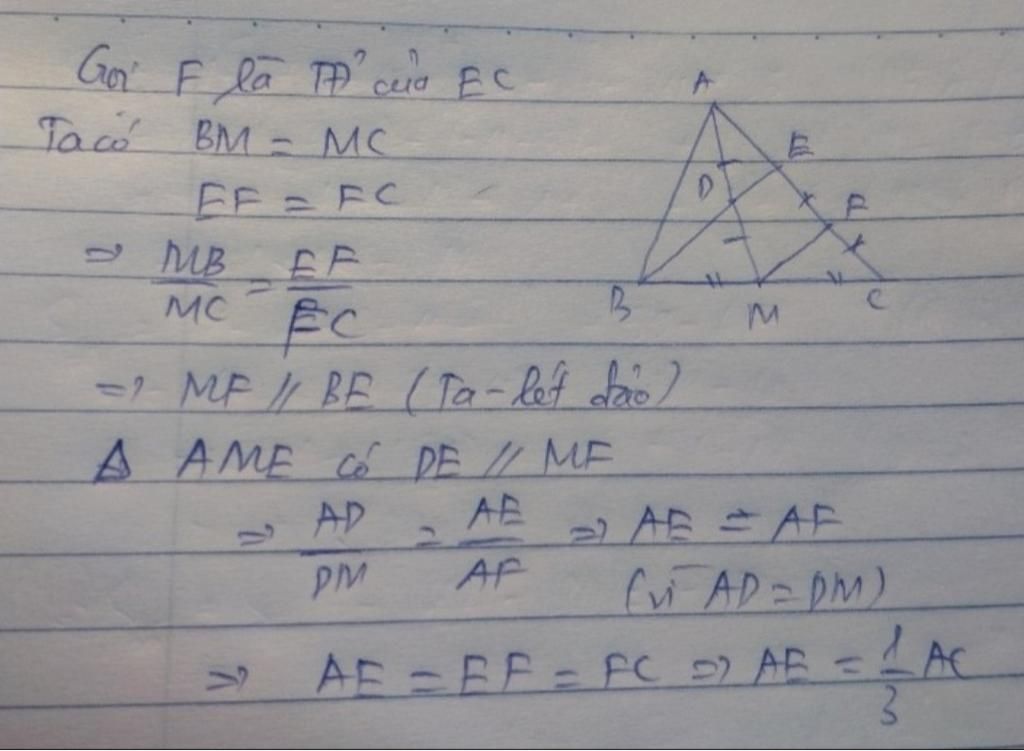 Gọi F là TĐ của EC
Ta có BM = MC
EF = FC
=> MB/MC = EF/FC
=> MF // BE (Ta-lét đảo)
Δ AME có DE // MF
=> AD/DM = AE/AF => AE = AF
(vì AD = DM)
=> AE = EF = FC => AE = 1/3 AC
A
E
D
F
B
M
C